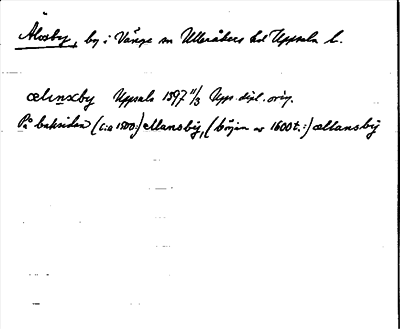 Ålosby, by i Vänge sn Ulleråkers hd Uppsala l.
ælinxby Uppsala 1397 11/3 Upps. dipl. orig.
På baksidan (ca 1500:) ællansby, (början av 1600t.:) ællansbÿ